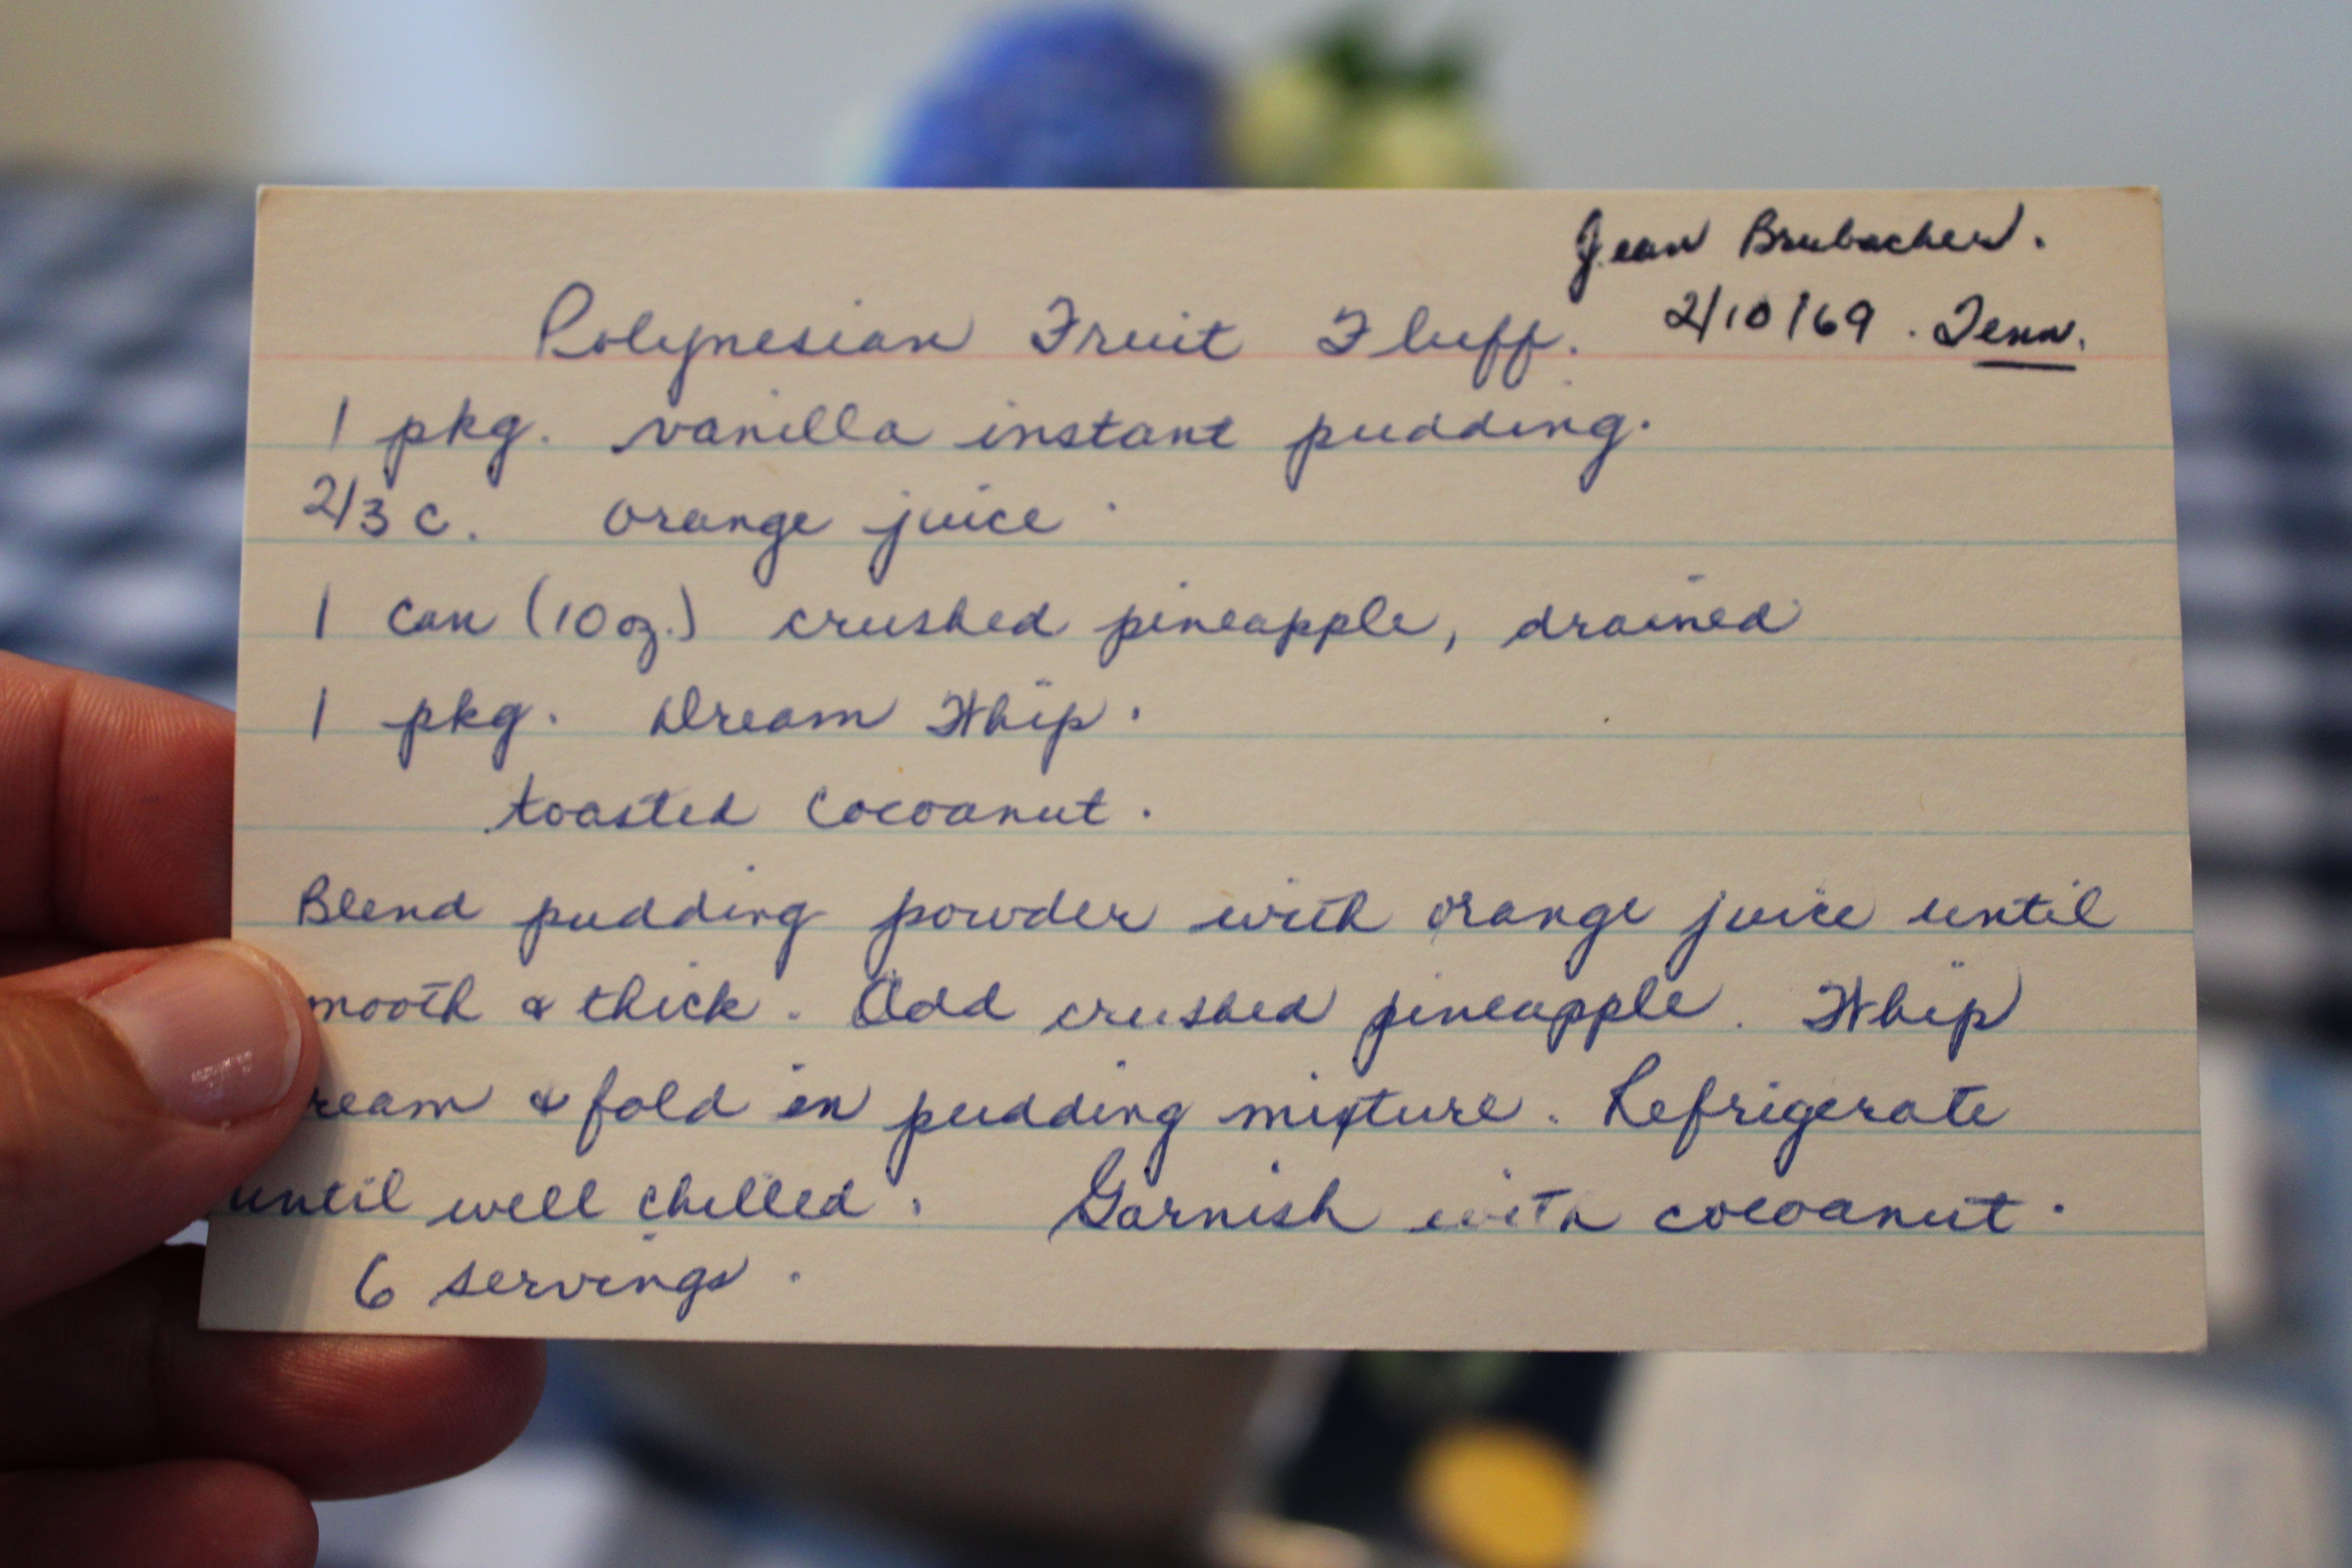 Jean Brubacher.
Polynesian Fruit Fluff. 2/10/69. Tenn.
1 pkg. vanilla instant pudding.
2/3 c. orange juice.
1 can (10 oz.) crushed pineapple, drained
1 pkg. Dream Whip.
toasted cocoanut.
Blend pudding powder with orange juice until
mooth & thick. Add crushed pineapple. Whip
ream & fold in pudding mixture. Refrigerate
until well chilled. Garnish with cocoanut.
6 servings.